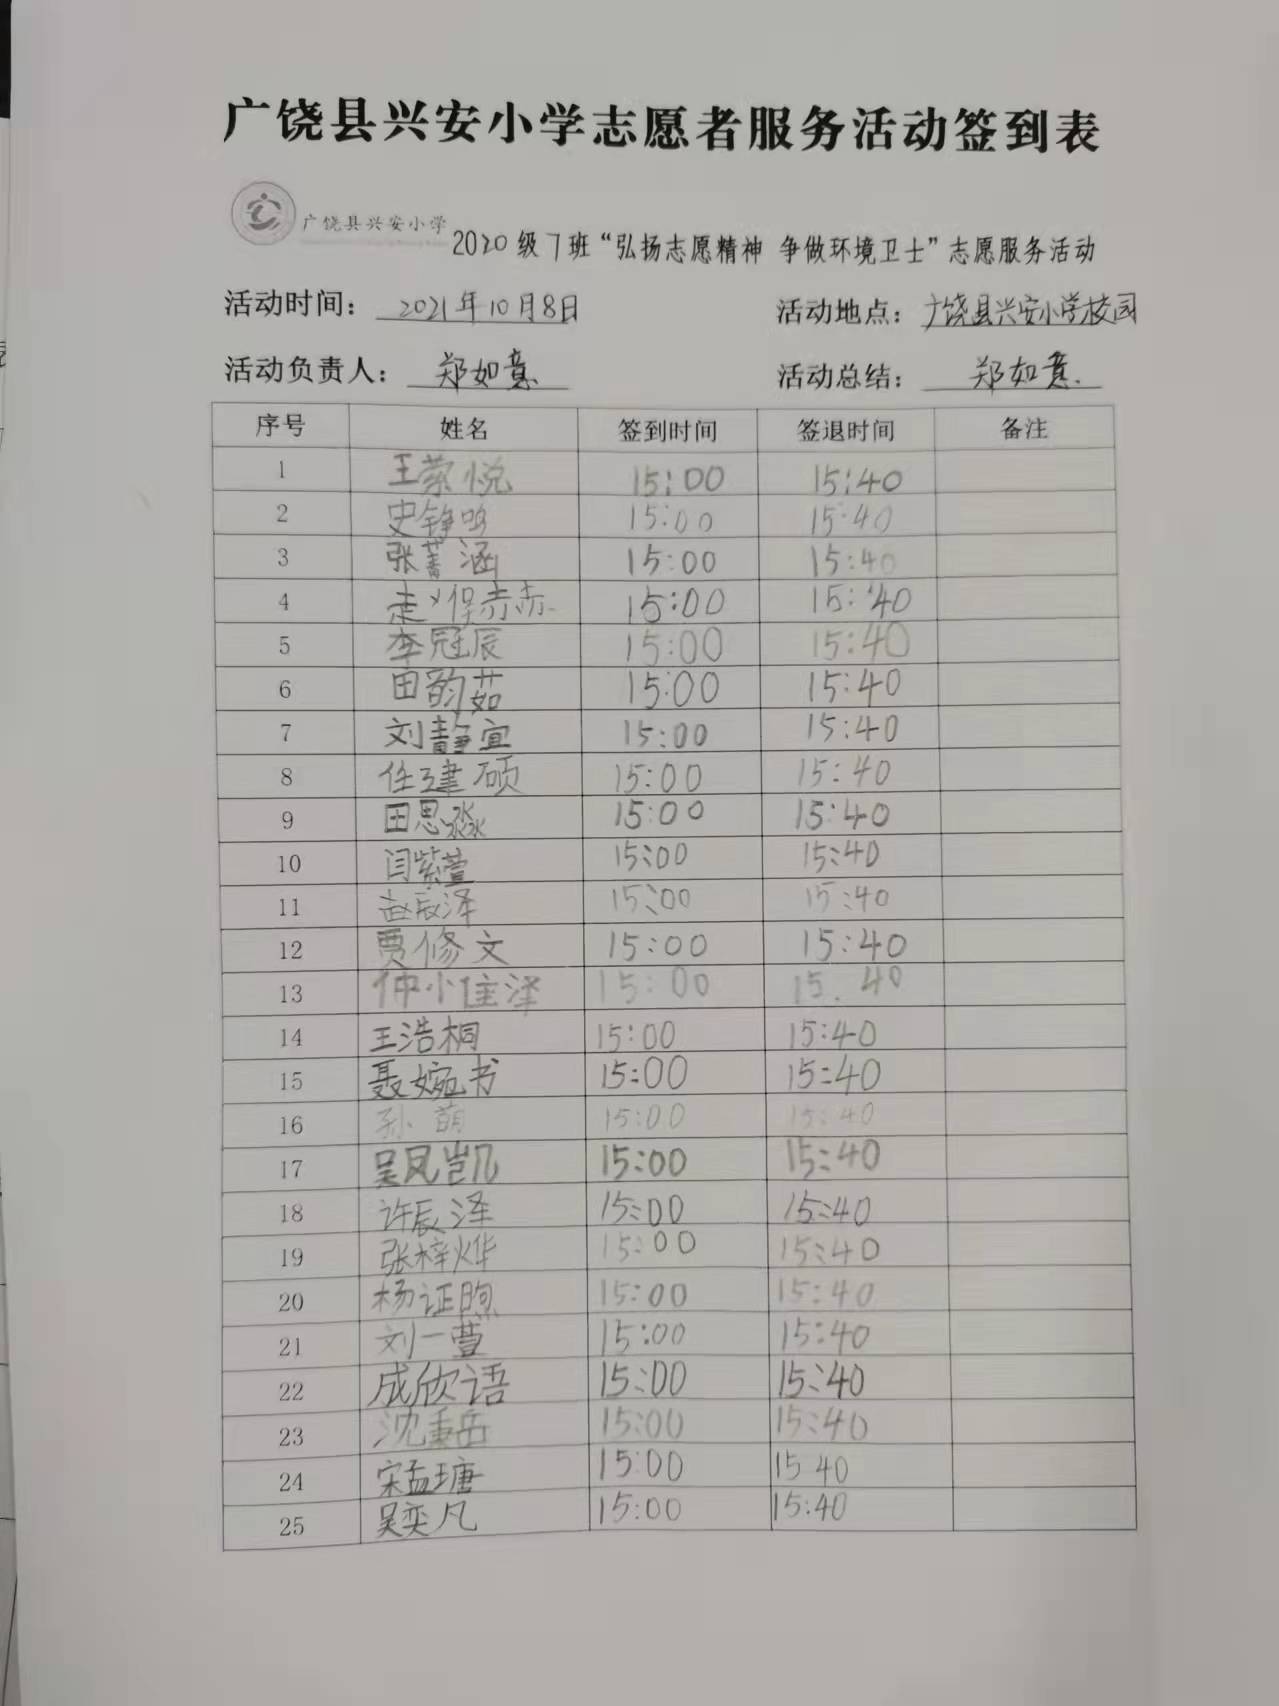 广饶县兴安小学志愿者服务活动签到表
广饶县兴安小学
2020级7班“弘扬志愿精神 争做环境卫士”志愿服务活动
活动时间：2021年10月8日 活动地点：广饶县兴安小学校园
活动负责人：郑如意 活动总结：郑如意
序号 姓名 签到时间 签退时间 备注
1 王蒙悦 15:00 15:40
2 史铮鸣 15:00 15:40
3 张菁涵 15:00 15:40
4 15:00 15:40
5 李冠辰 15:00 15:40
6 田韵茹 15:00 15:40
7 刘静宜 15:00 15:40
8 任建硕 15:00 15:40
9 田思淼 15:00 15:40
10 闫紫萱 15:00 15:40
11 赵辰泽 15:00 15:40
12 贾修文 15:00 15:40
13 仲小佳泽 15:00 15.40
14 王浩桐 15:00 15:40
15 聂婉书 15:00 15:40
16 孙萌 15:00 15:40
17 吴凤岂凡 15:00 15:40
18 许辰泽 15:00 15:40
19 张梓烨 15:00 15:40
20 杨证煦 15:00 15:40
21 刘一萱 15:00 15:40
22 成欣语 15:00 15:40
23 沈秉岳 15:00 15:40
24 宋孟瑭 15:00 15 40
25 吴奕凡 15:00 15:40